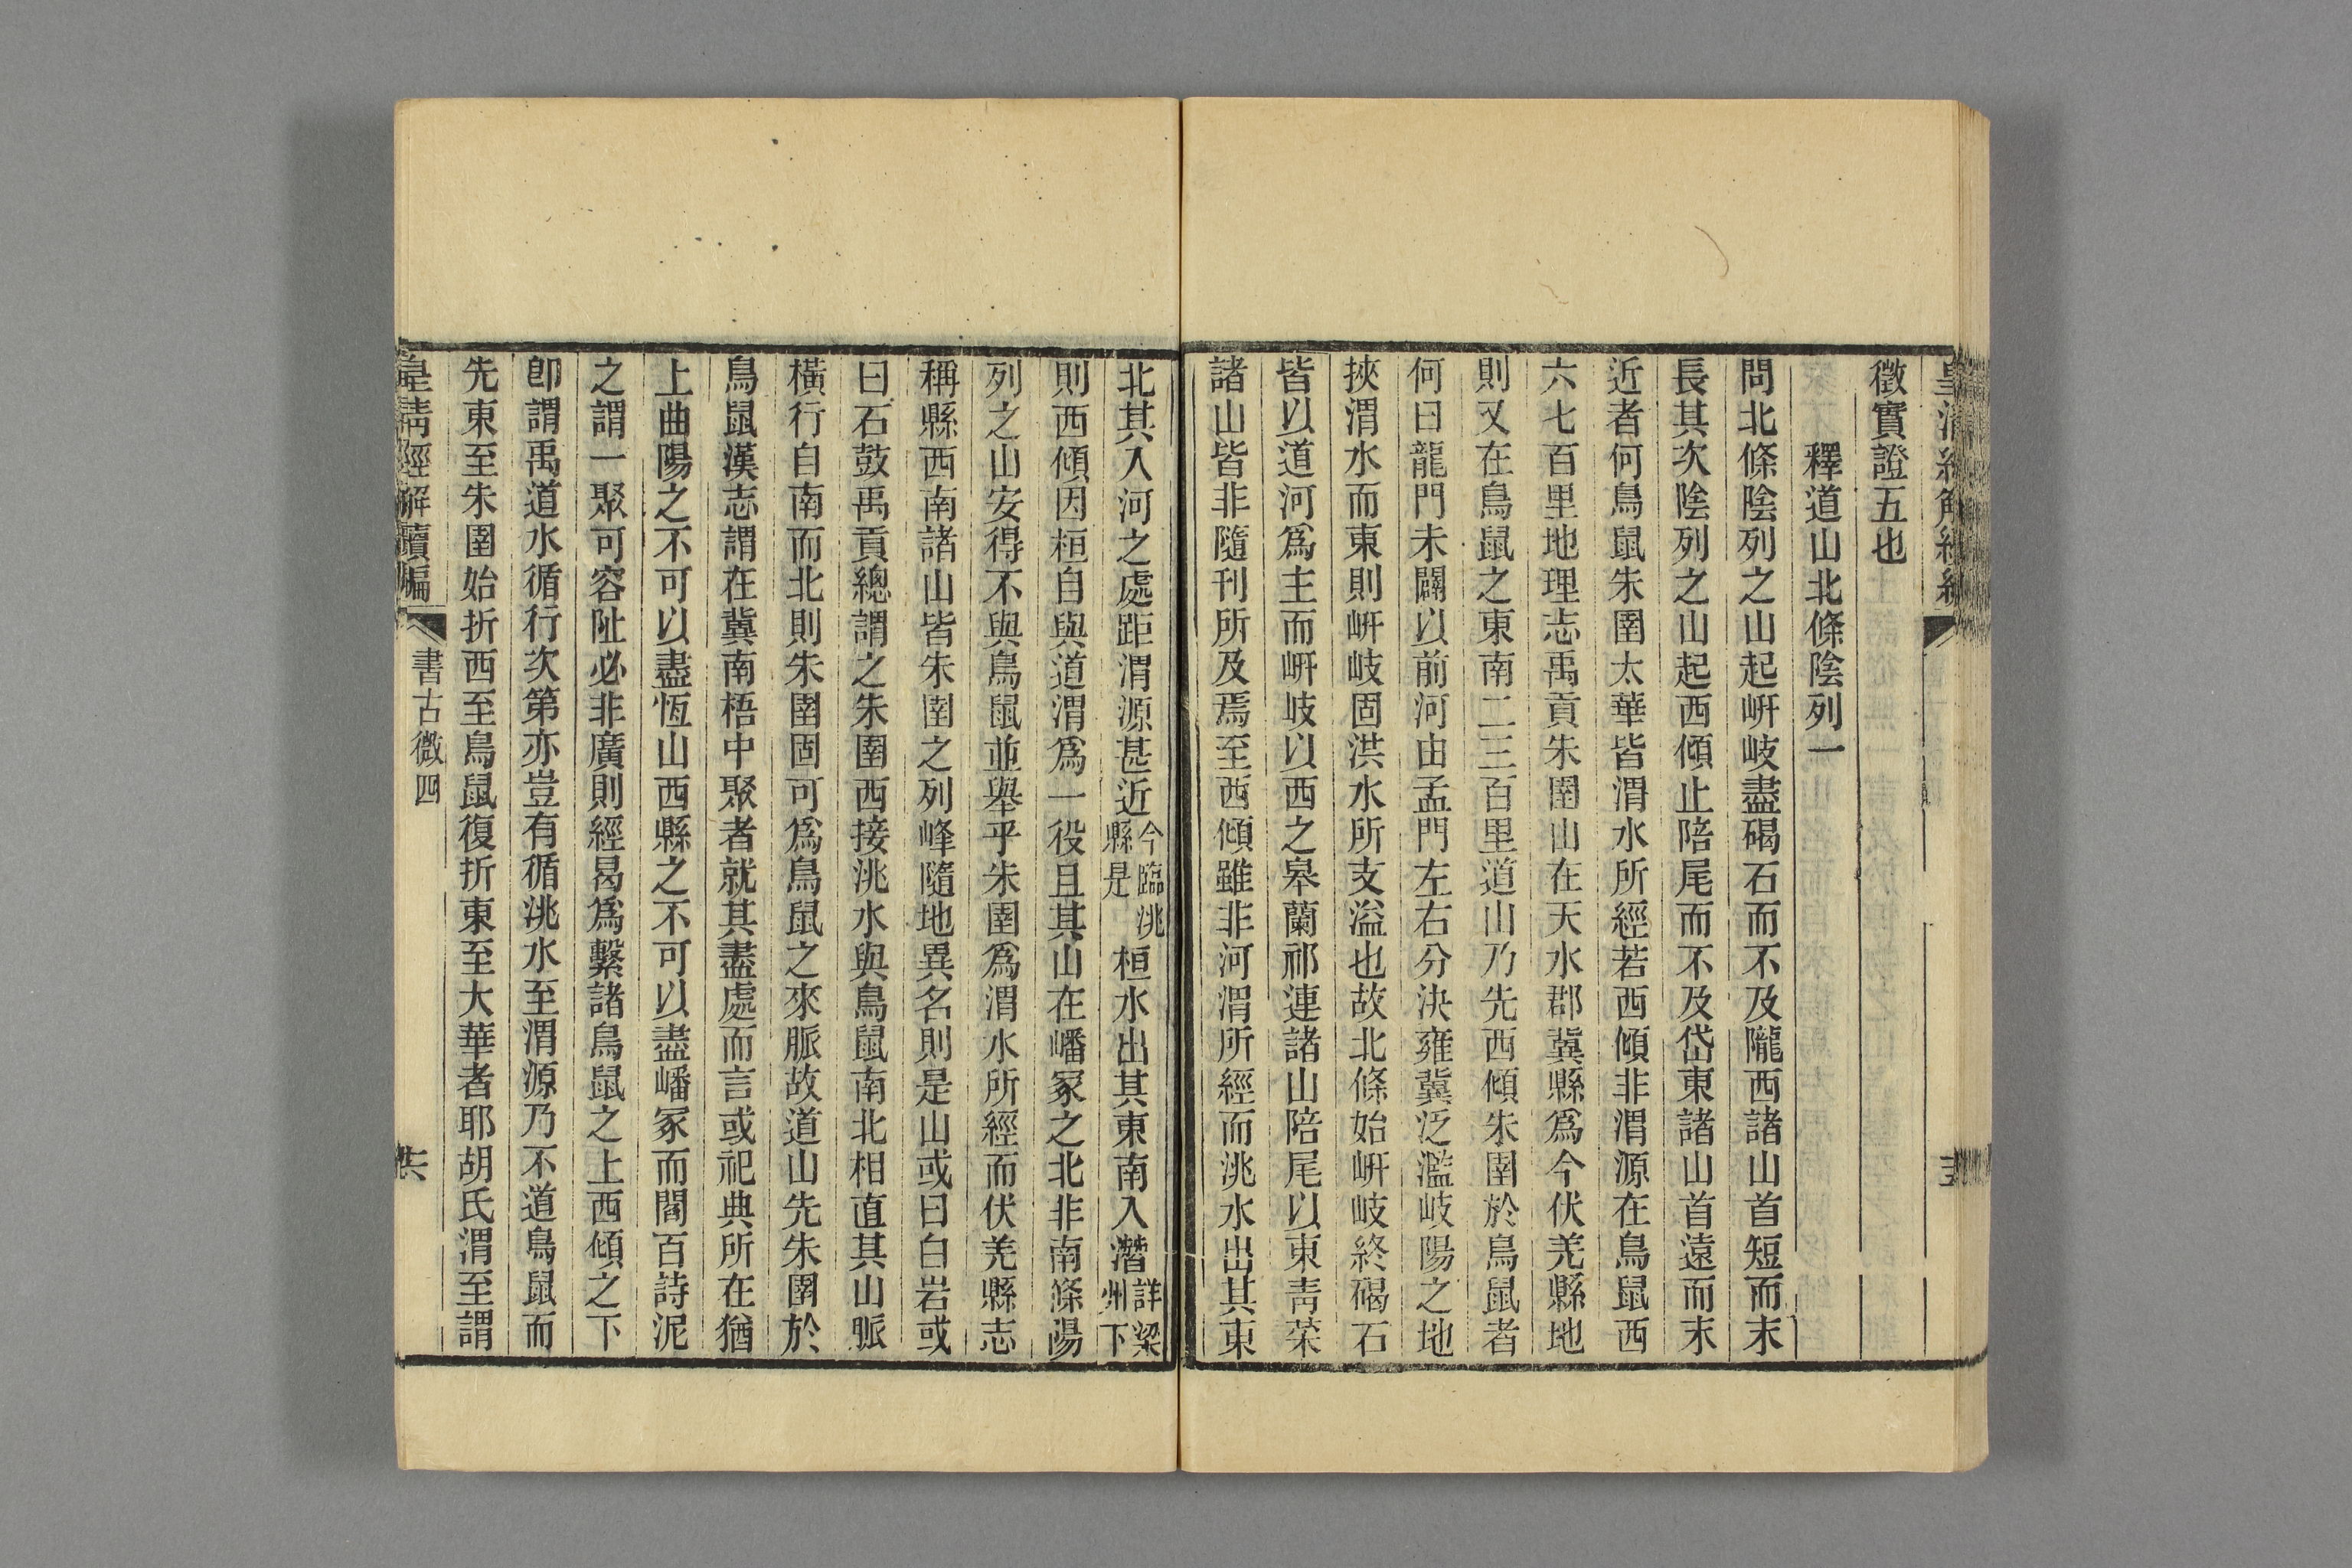 徵實證五也
釋道山北條陰列一
問北條陰列之山起岍岐盡碣石而不及隴西諸山首短而末
長其次陰列之山起西傾止陪尾而不及岱東諸山首遠而末
近者何鳥鼠朱圉太華皆渭水所經若西傾非渭源在鳥鼠西
六七百里地理志禹貢朱圉山在天水郡冀縣爲今伏羌縣地
則又在鳥鼠之東南二三百里道山乃先西傾朱圉於鳥鼠者
何曰龍門未闢以前河由孟門左右分決雍冀泛濫岐陽之地
挾渭水而東則岍岐固洪水所支溢也故北條始岍岐終碣石
皆以道河爲主而岍岐以西之皋蘭祁連諸山陪尾以東靑萊
諸山皆非隨刊所及焉至西傾雖非河渭所經而洮水出其東
北其入河之處距渭源甚近今臨洮縣是桓水出其東南入潛詳梁州下
則西傾因桓自與道渭爲一役且其山在嶓冢之北非南條陽
列之山安得不與鳥鼠並舉乎朱圉爲渭水所經而伏羌縣志
稱縣西南諸山皆朱圉之列峰隨地異名則是山或曰白岩或
曰石鼓禹貢總謂之朱圉西接洮水與鳥鼠南北相直其山脈
橫行自南而北則朱圉固可爲鳥鼠之來脈故道山先朱圉於
鳥鼠漢志謂在冀南梧中聚者就其盡處而言或祀典所在猶
上曲陽之不可以盡恆山西縣之不可以盡嶓冢而閻百詩泥
之謂一聚可容阯必非廣則經曷爲繫諸鳥鼠之上西傾之下
卽謂禹道水循行次第亦豈有循洮水至渭源乃不道鳥鼠而
先東至朱圉始折西至鳥鼠復折東至大華者耶胡氏渭至謂
皇淸經解續編
書古微四